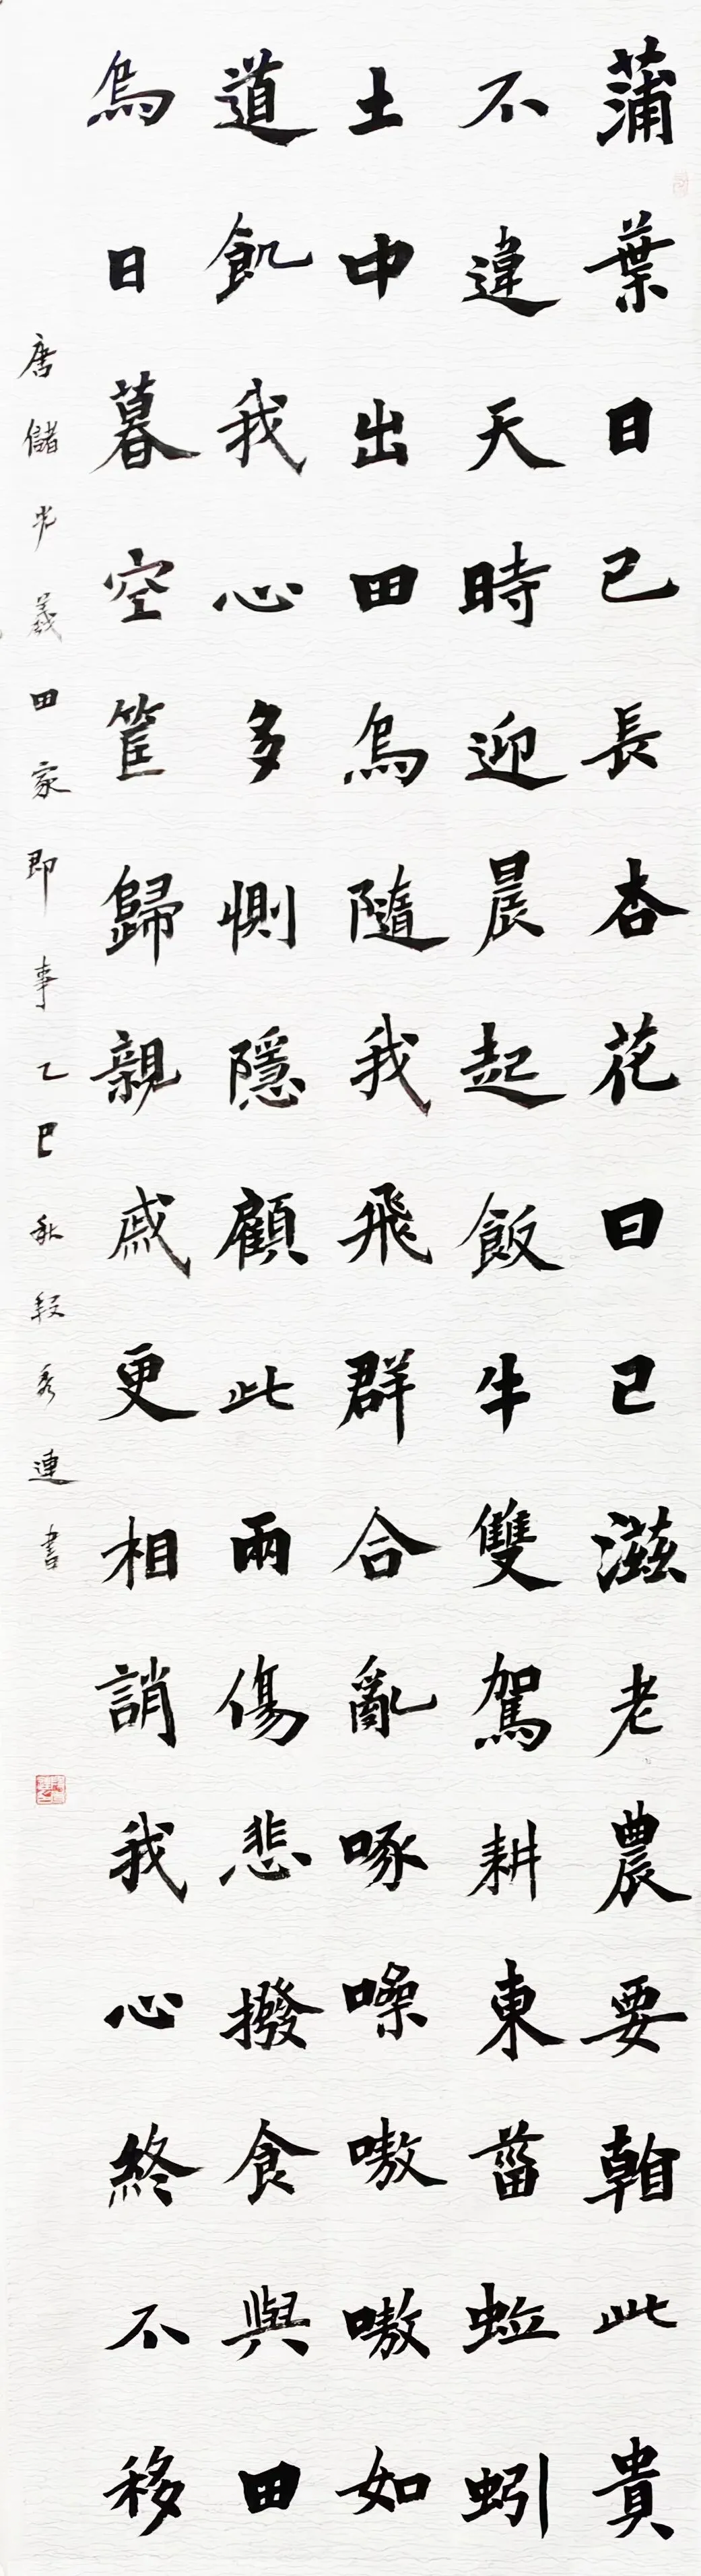 蒲葉日已長杏花日已滋老農要𩜾此貴
不違天時迎晨起飯牛雙駕耕東菑蚯蚓
土中出田烏隨我飛群合亂啄噪嗷嗷如
道飢我心多惻隱顧此兩傷悲撥食與田
烏日暮空筐歸親戚更相誚我心終不移
唐儲光羲田家即事乙巳秋段秀連書